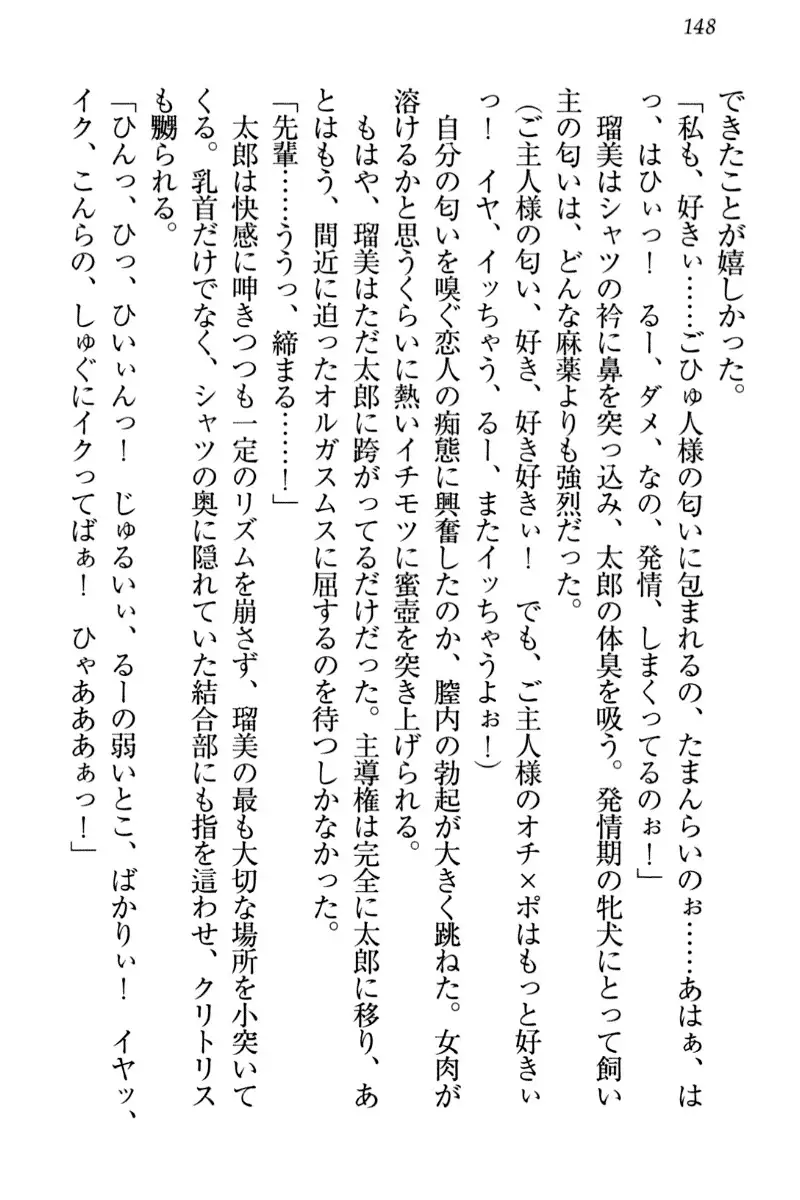 148
できたことが嬉しかった。
「私も、好きぃ……ごひゅ人様の匂いに包まれるの、たまんらいのぉ……あはぁ、は
っ、はひぃっ！　るー、ダメ、なの、発情、しまくってるのぉ！」
瑠美はシャツの衿に鼻を突っ込み、太郎の体臭を吸う。発情期の牝犬にとって飼い
主の匂いは、どんな麻薬よりも強烈だった。
（ご主人様の匂い、好き、好き好きぃ！　でも、ご主人様のオチ×ポはもっと好きぃ
っ！　イヤ、イッちゃう、るー、またイッちゃうよぉ！）
自分の匂いを嗅ぐ恋人の痴態に興奮したのか、膣内の勃起が大きく跳ねた。女肉が
溶けるかと思うくらいに熱いイチモツに蜜壺を突き上げられる。
もはや、瑠美はただ太郎に跨がってるだけだった。主導権は完全に太郎に移り、あ
とはもう、間近に迫ったオルガスムスに屈するのを待つしかなかった。
「先輩……ううっ、締まる……！」
太郎は快感に呻きつつも一定のリズムを崩さず、瑠美の最も大切な場所を小突いて
くる。乳首だけでなく、シャツの奥に隠れていた結合部にも指を這わせ、クリトリス
も嬲られる。
「ひんっ、ひっ、ひいぃんっ！　じゅるいぃ、るーの弱いとこ、ばかりぃ！　イヤッ、
イク、こんらの、しゅぐにイクってばぁ！　ひゃあああぁっ！」